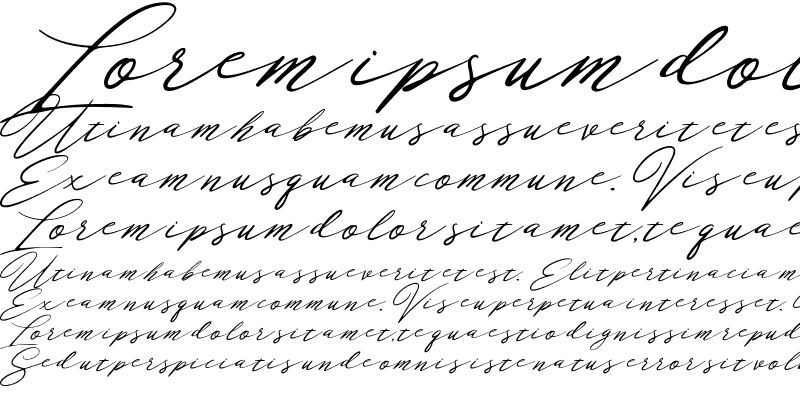 Lorem ipsum dol
Utinam habemus assueverit et es
Ex eam nusquam commune. Vis eu p
Lorem ipsum dolor sit amet, te quae
Utinam habemus assueverit et est. Elit pertinacia m
Ex eam nusquam commune. Vis eu perpetua interesset.
Lorem ipsum dolor sit amet, te quaestio dignissim repud
Sed ut perspiciatis unde omnis iste natus error sit volu